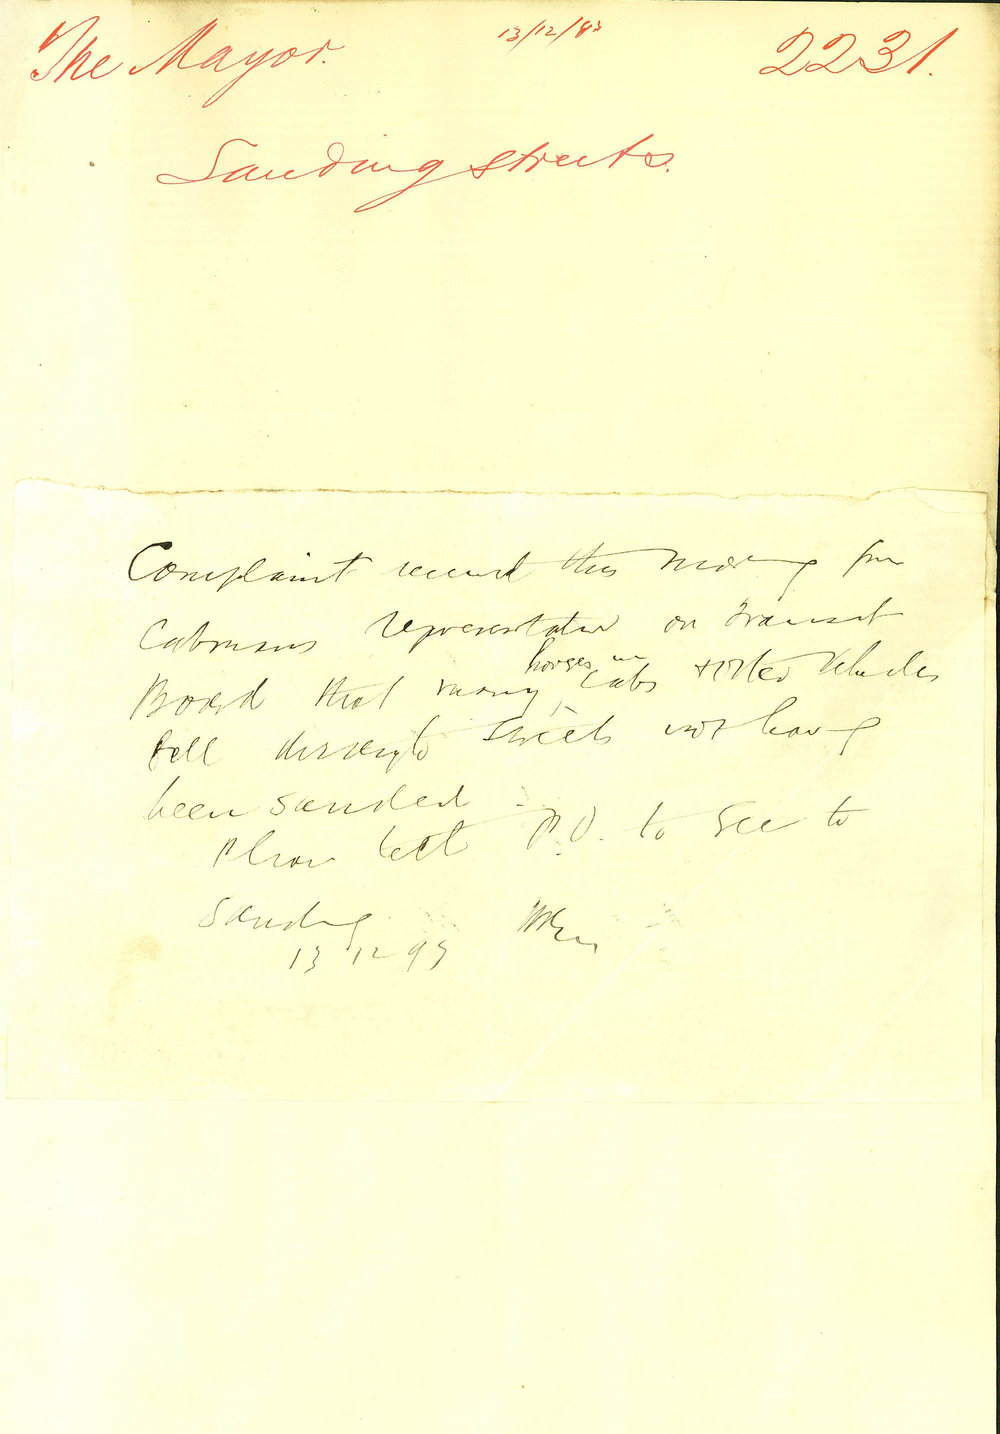 The Mayor. 13/12/93 2231.
Sanding streets.
Complaint received this morning from
Cabmans representative on Transit
Board that many horses in cabs & other vehicles
fell through streets not having
been sanded.
Please tell P.O. to see to
Sanding
13 12 93